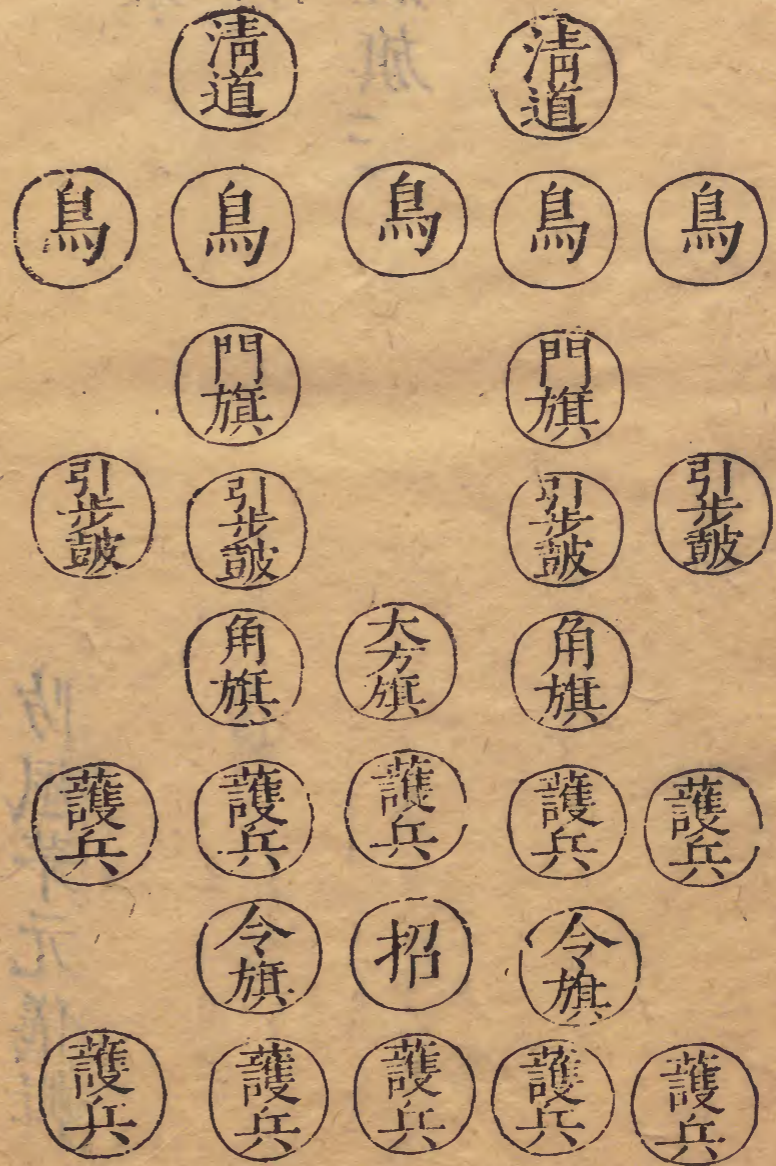 清道 清道
鳥 鳥 鳥 鳥 鳥
門旗 門旗
引步皷 引步皷 引步皷 引步皷
角旗 大方旗 角旗
護兵 護兵 護兵 護兵 護兵
令旗 招 令旗
護兵 護兵 護兵 護兵 護兵